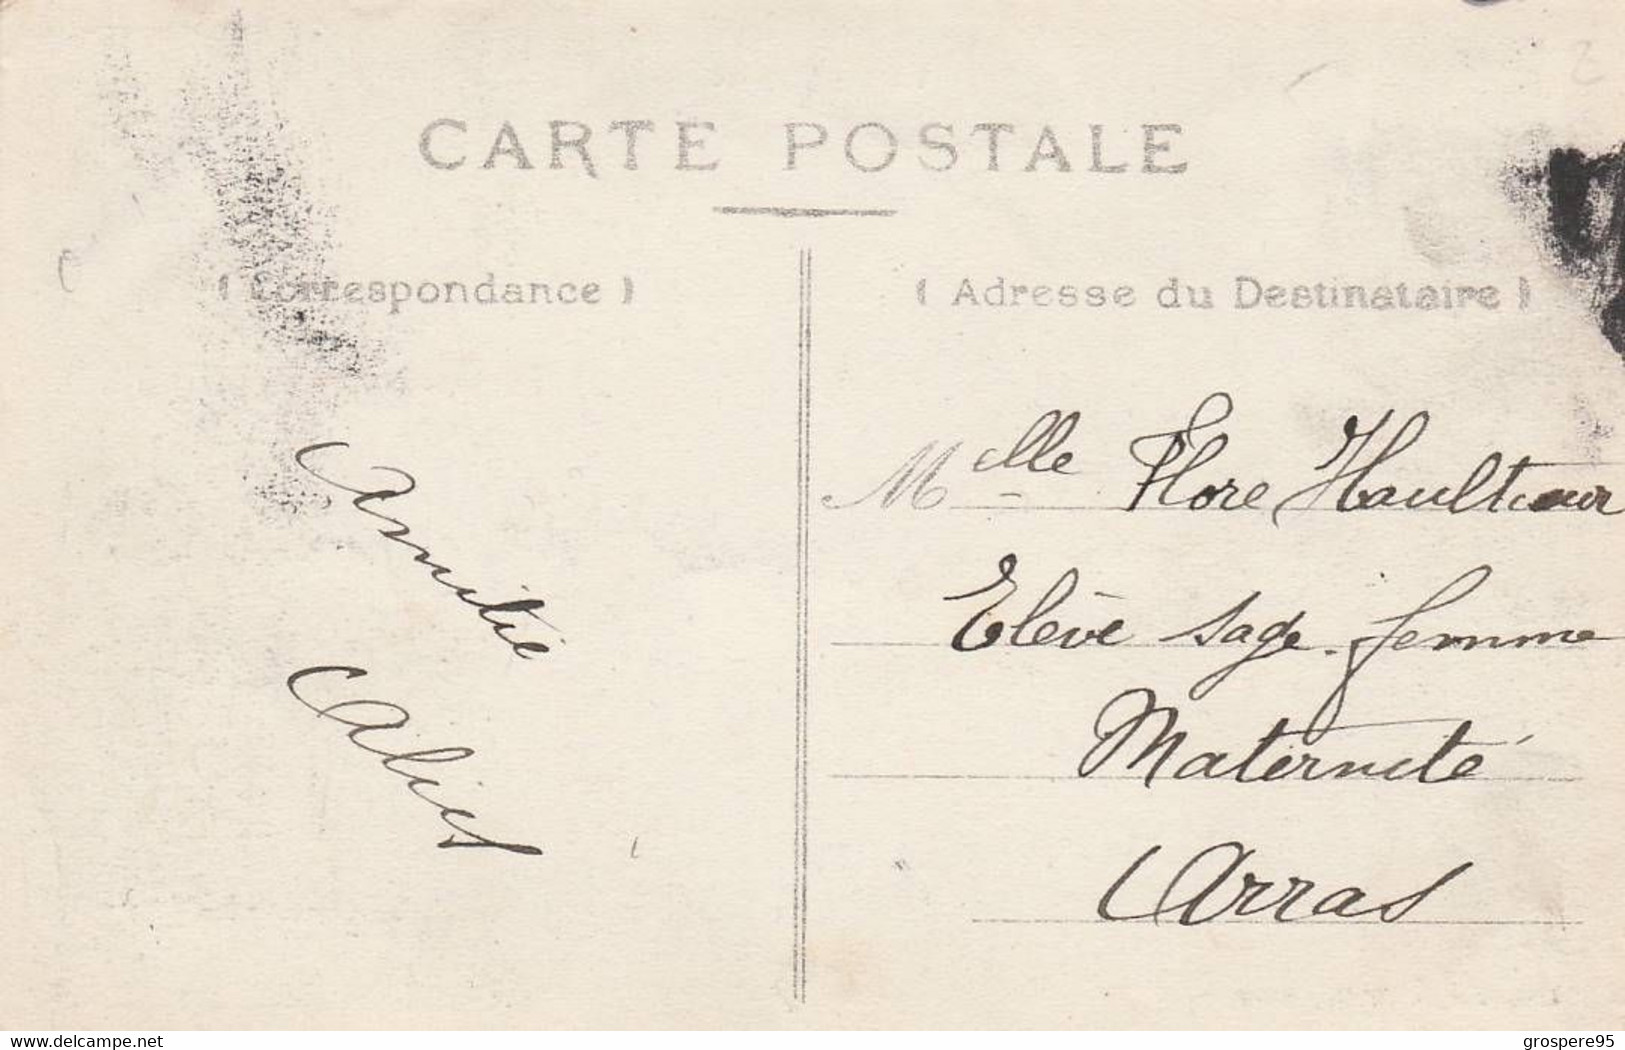 CARTE POSTALE
( Correspondance )
( Adresse du Destinataire )
Amitié
Melle Flore
Elève sage-femme
Maternité
Arras
delcampe.net
grospere95